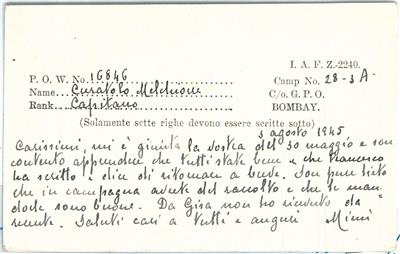 I. A. F. Z.-2240.
P. O. W. No. 16846 Camp No. 28-3 A-
Name Curatolo Melchiorre C/o G. P. O.
Rank Capitano BOMBAY.
(Solamente sette righe devono essere scritte sotto)
3 agosto 1945
Carissimi, mi è giunta la vostra del 30 maggio e son
contento apprendere che tutti state bene e che Francesco
ha scritto e dice di ritornare a breve. Son pure lieto
che in campagna avete del raccolto e che le man=
dorle sono buone. Da Gisa non ho ricevuto da
recente. Saluti cari a tutti e auguri Mimì